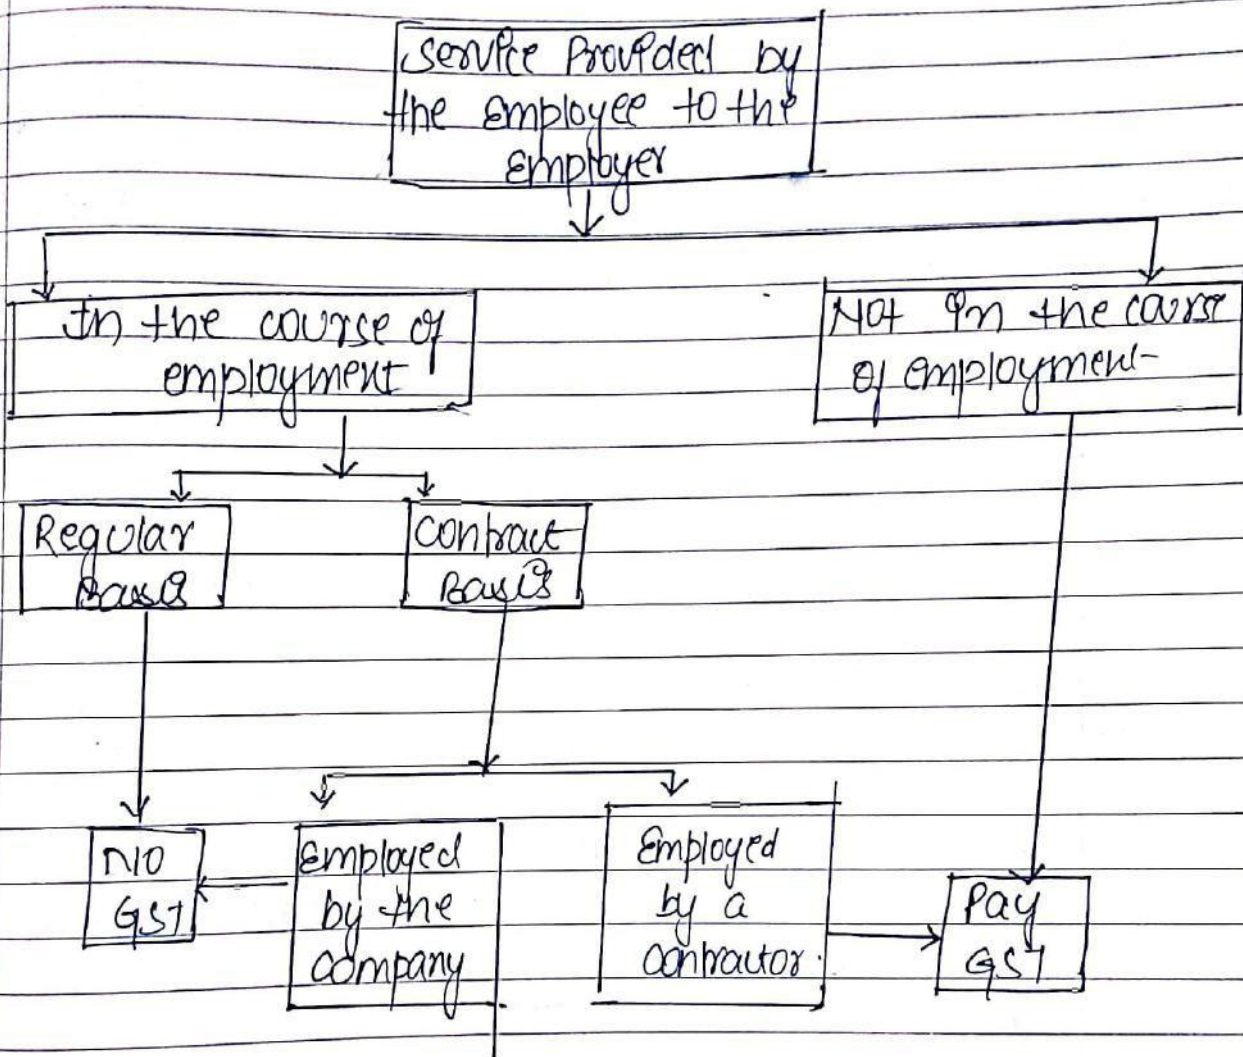 Service Provided by
the employee to the
Employer
In the course of
employment
Not in the course
of employment
Regular
Basis
Contract
Basis
NO
GST
Employed
by the
company
Employed
by a
contractor.
Pay
GST